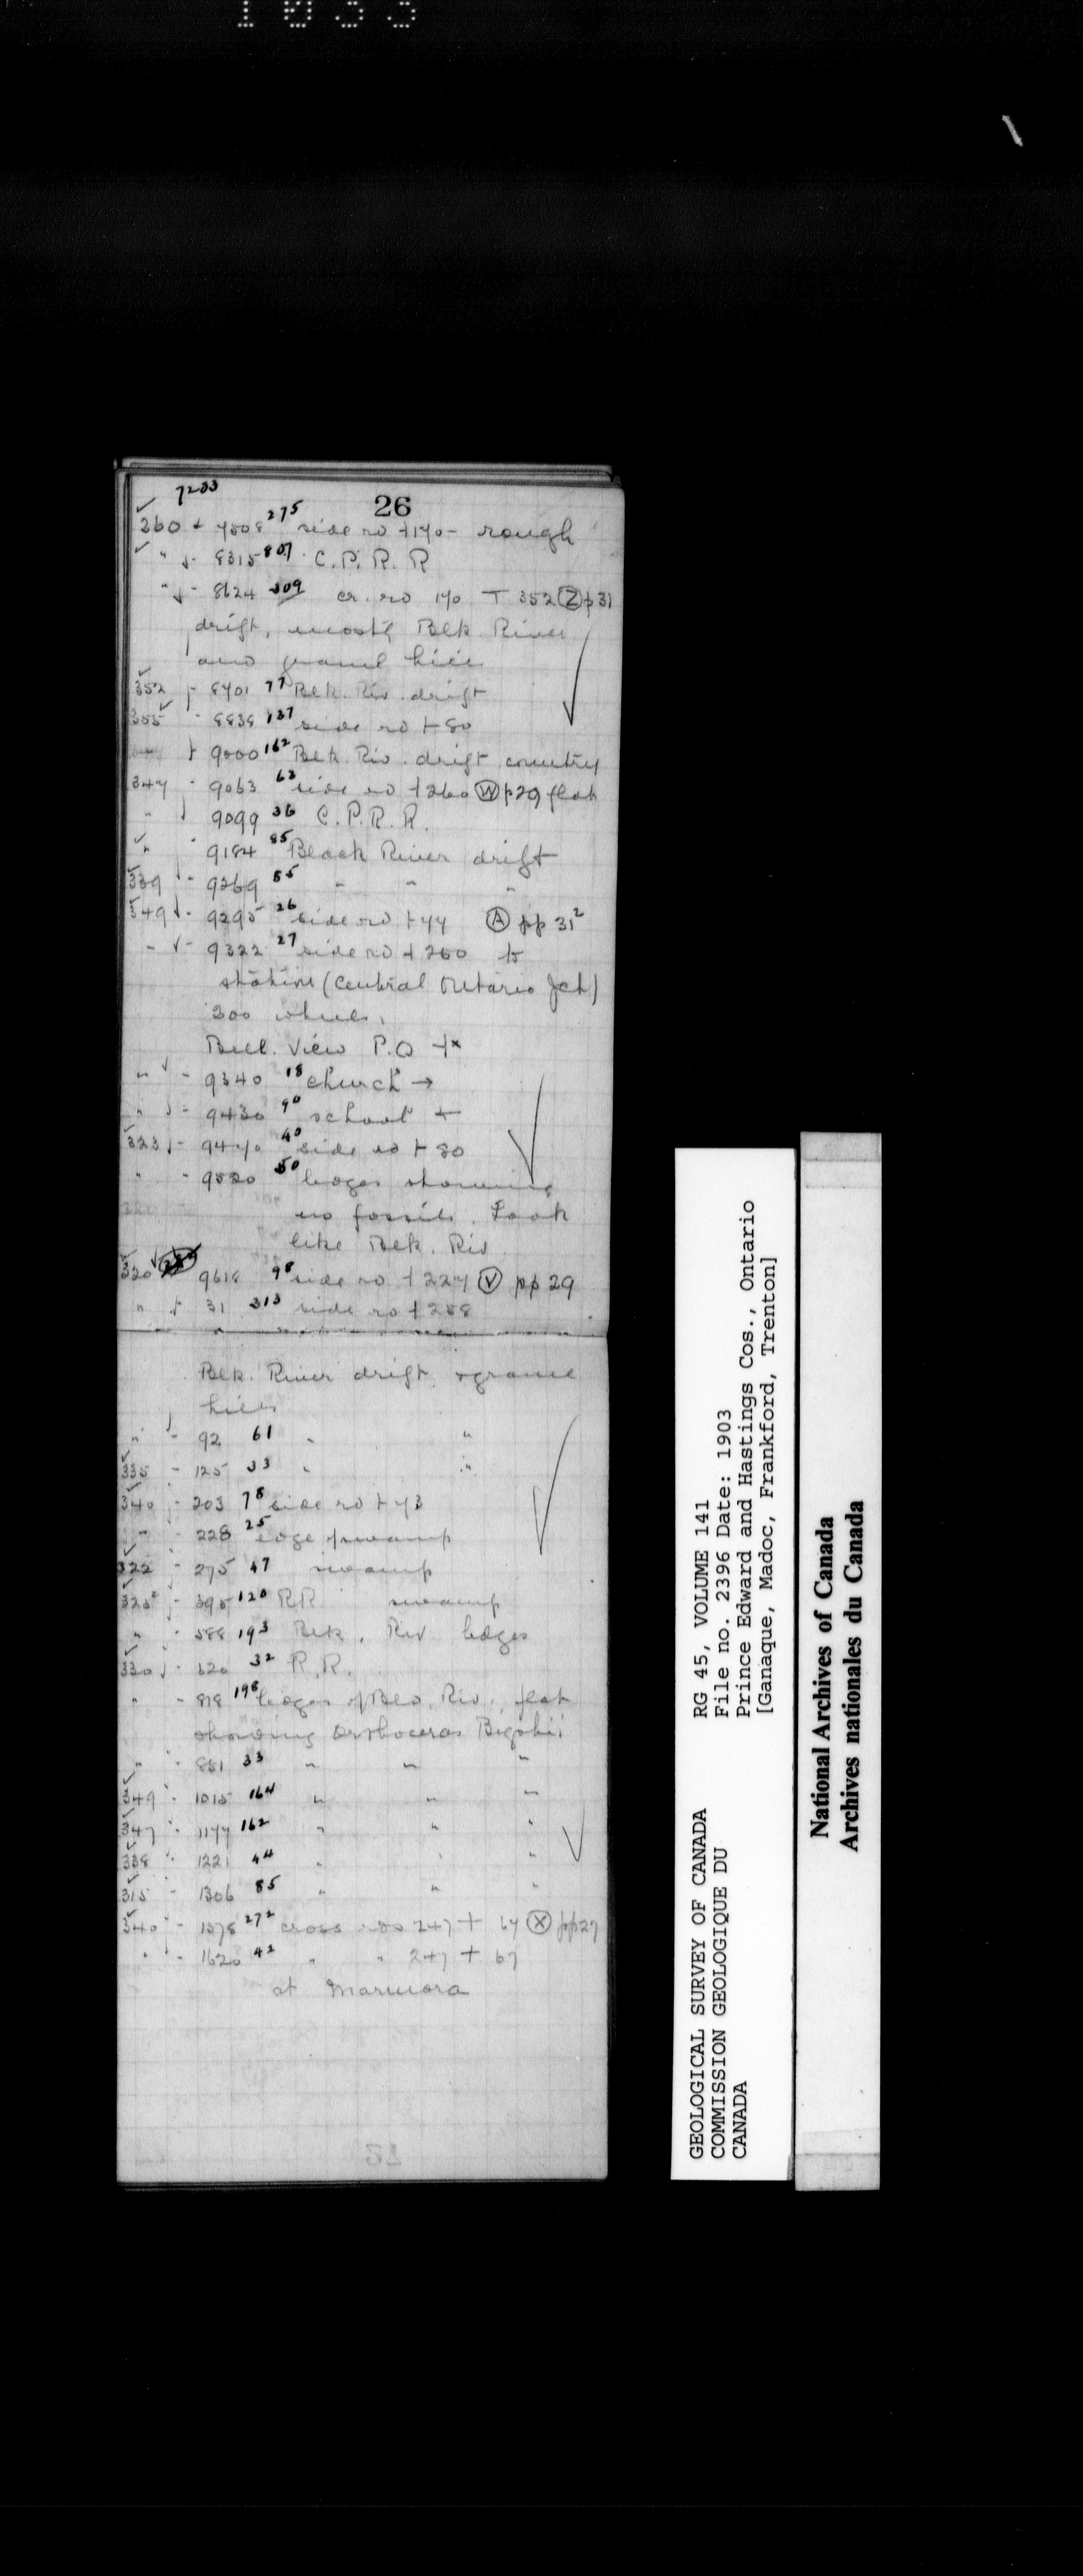 1033
26
7233
260 + 7508 275 side rd +170 - rough
" - 8315 807 C.P.R.R
" - 8624 309 cr. rd 170 T 352 (Z) p31
drift, mostly Blk River
and gravel hills
352 - 8701 77 Blk. Riv. drift
355 - 8838 137 side rd + 80
" 9000 162 Blk. Riv. drift country
347 - 9063 63 side rd +260 (W) p29 flat
" 9099 36 C.P.R.R.
" - 9184 85 Black River drift
339 - 9269 85 " " "
349 - 9295 26 side rd + 77 (A) pp 31²
" - 9322 27 side rd + 260 to
station (Central Ontario Jct)
300 wheel.
Bell. View P.O +x
" - 9340 18 church →
" - 9430 90 school
323 - 9470 40 side rd + 80
" - 9520 50 ledges showing
no fossils. Look
like Blk. Riv.
320 9618 98 side rd + 227 (V) pp 29
" 31 313 side rd + 258
Blk. River drift + gravel
hills
" - 92 61 " "
335 - 125 33 " "
340 - 203 78 side rd + 73
" - 228 25 edge of swamp
322 - 275 47 swamp
325² - 395 120 RR swamp
" - 588 193 Blk. Riv ledges
330 - 620 32 R.R.
" - 818 198 ledges of Blk. Riv. flat
showing Orthoceras Bigsbii
" - 851 33 " " "
349 - 1015 164 " " "
347 - 1177 162 " " "
338 - 1221 44 " " "
315 - 1306 85 " " "
340 - 1578 272 cross rds 247 + 67 (X) pp27
" - 1620 42 " " 247 + 67
at Marmora
GEOLOGICAL SURVEY OF CANADA
COMMISSION GEOLOGIQUE DU
CANADA
RG 45, VOLUME 141
File no. 2396 Date: 1903
Prince Edward and Hastings Cos., Ontario
[Ganaque, Madoc, Frankford, Trenton]
National Archives of Canada
Archives nationales du Canada